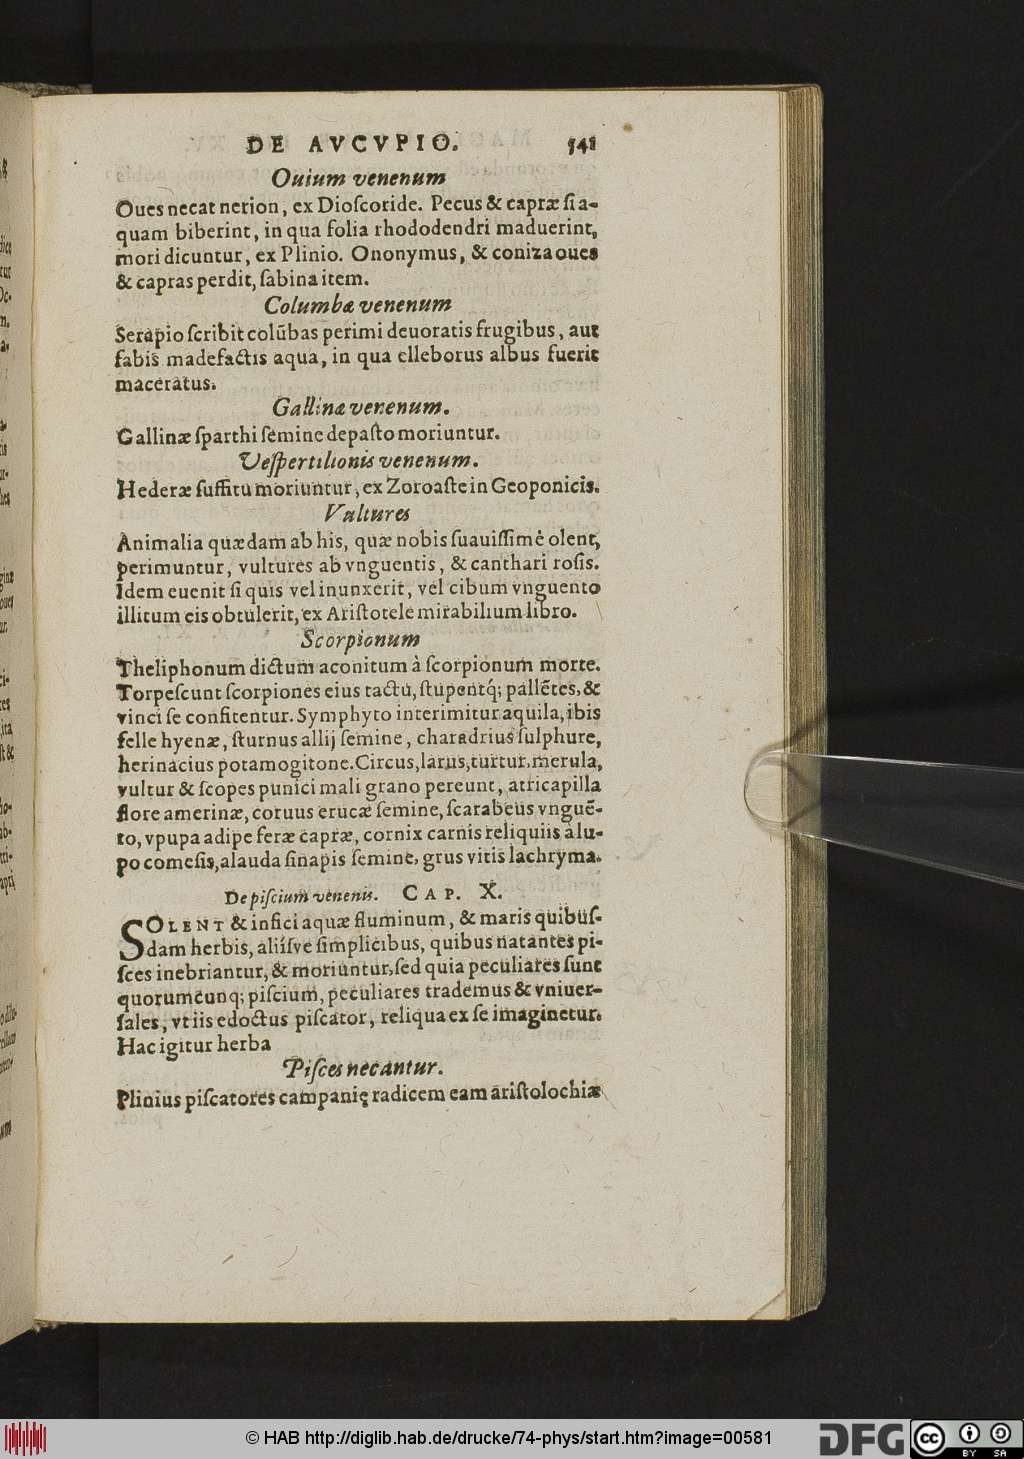 DE AVCVPIO. 541
Ouium venenum
Oues necat nerion, ex Dioſcoride. Pecus & capræ ſi a-
quam biberint, in qua folia rhododendri maduerint,
mori dicuntur, ex Plinio. Ononymus, & coniza oues
& capras perdit, ſabina item.
Columbæ venenum
Serapio ſcribit colūbas perimi deuoratis frugibus, aut
fabis madefactis aqua, in qua elleborus albus fuerit
maceratus.
Gallinæ venenum.
Gallinæ ſparthi ſemine depaſto moriuntur.
Veſpertilionis venenum.
Hederæ ſuffitu moriuntur, ex Zoroaſte in Geoponicis.
Vultures
Animalia quædam ab his, quæ nobis ſuauiſſimè olent,
perimuntur, vultures ab vnguentis, & canthari roſis.
Idem euenit ſi quis vel inunxerit, vel cibum vnguento
illitum eis obtulerit, ex Ariſtotele mirabilium libro.
Scorpionum
Theliphonum dictum aconitum à ſcorpionum morte.
Torpeſcunt ſcorpiones eius tactu, ſtupentq́; pallētes, &
vinci ſe confitentur. Symphyto interimitur aquila, ibis
felle hyenæ, ſturnus allij ſemine, charadrius ſulphure,
herinacius potamogitone. Circus, larus, turtur, merula,
vultur & ſcopes punici mali grano pereunt, atricapilla
flore amerinæ, coruus erucæ ſemine, ſcarabeus vnguē-
to, vpupa adipe feræ capræ, cornix carnis reliquiis à lu-
po comeſis, alauda ſinapis ſemine, grus vitis lachryma.
De piſcium venenis. CAP. X.
SOLENT & infici aquæ fluminum, & maris quibuſ-
dam herbis, aliíſve ſimplicibus, quibus natantes pi-
ſces inebriantur, & moriuntur, ſed quia peculiares ſunt
quorumcunq; piſcium, peculiares trademus & vniuer-
ſales, vt iis edoctus piſcator, reliqua ex ſe imaginetur.
Hac igitur herba
Piſces necantur.
Plinius piſcatores campanię radicem eam ariſtolochiæ
© HAB http://diglib.hab.de/drucke/74-phys/start.htm?image=00581
DFG
cc BY SA